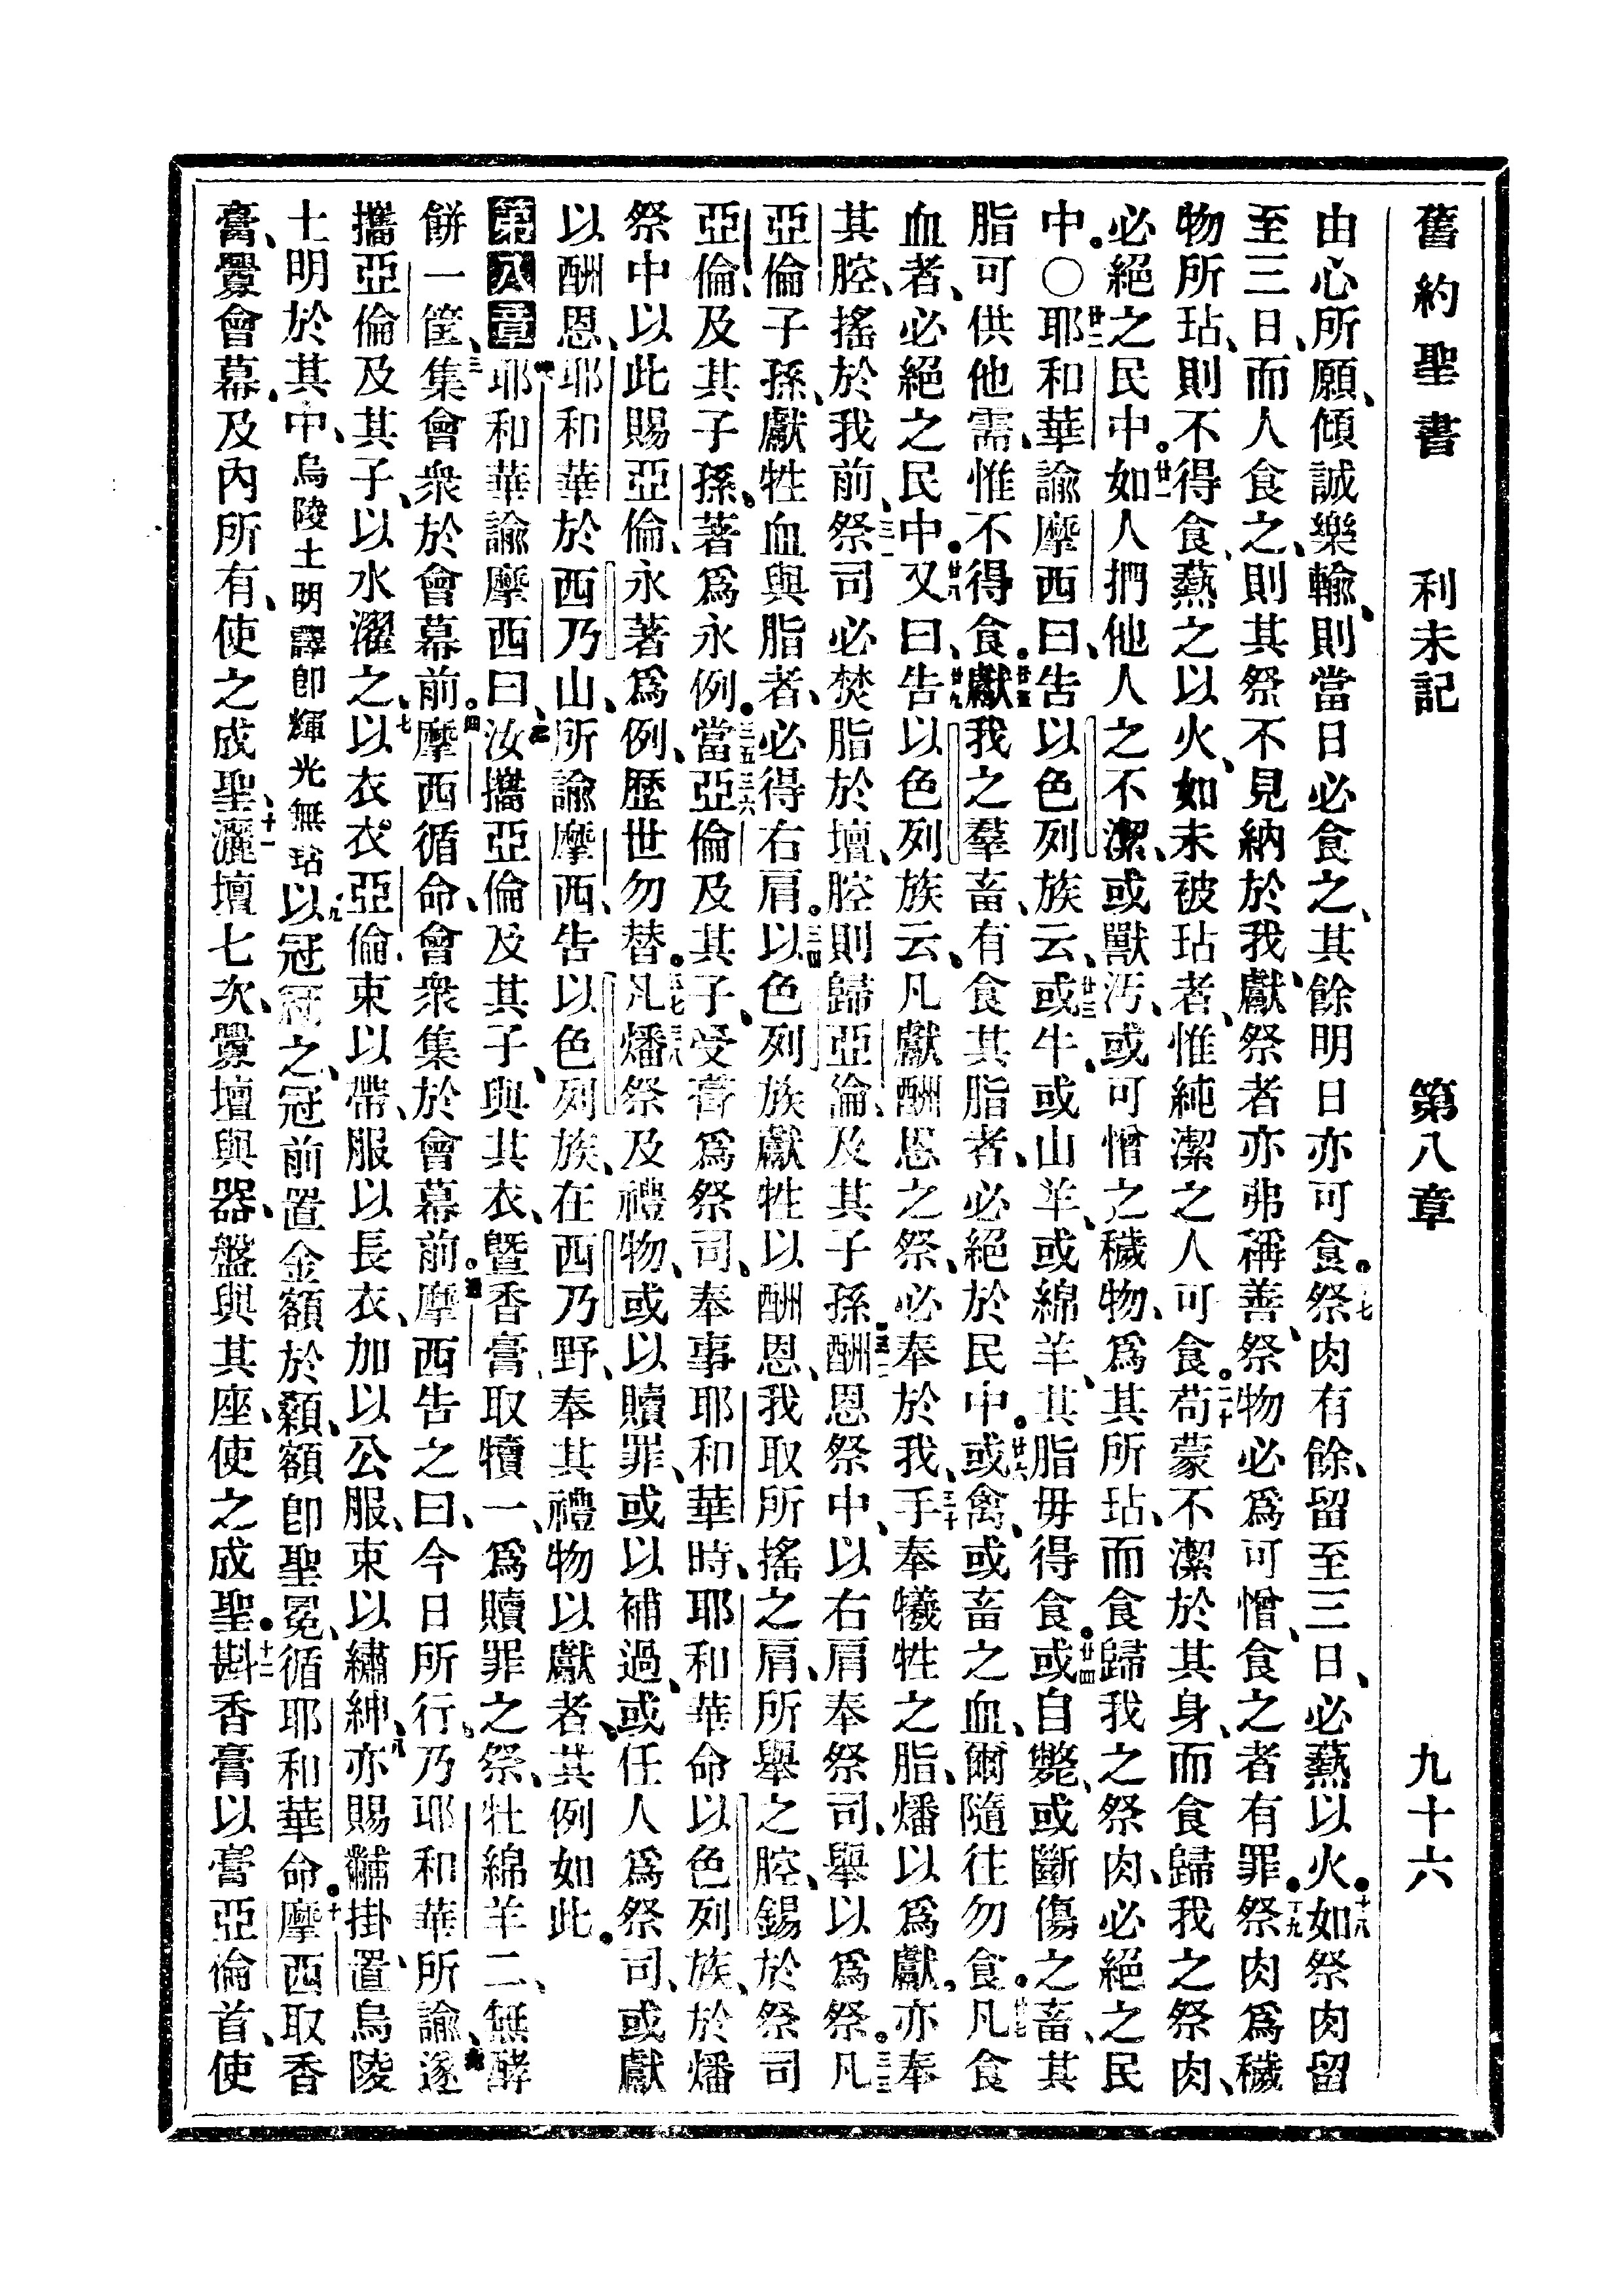 舊約聖書 利未記 第八章 九十六
由心所願、傾誠樂輸、則當日必食之、其餘明日亦可食。十七祭肉有餘、留至三日、必爇以火。十八如祭肉留
至三日、而人食之、則其祭不見納於我、獻祭者亦弗稱善、祭物必爲可憎、食之者有罪。十九祭肉爲穢
物所玷、則不得食、爇之以火、如未被玷者、惟純潔之人可食。二十苟蒙不潔於其身、而食歸我之祭肉、
必絕之民中。廿一如人捫他人之不潔、或獸汚、或可憎之穢物、爲其所玷、而食歸我之祭肉、必絕之民
中。○廿二耶和華諭摩西曰、告以色列族云、廿三或牛、或山羊、或綿羊、其脂毋得食。廿四或自斃、或斷傷之畜、其
脂可供他需、惟不得食。廿五獻我之羣畜、有食其脂者、必絕於民中。廿六或禽、或畜之血、爾隨往勿食。廿七凡食
血者、必絕之民中。廿八又曰、廿九告以色列族云、凡獻酬恩之祭、必奉於我、三十手奉犧牲之脂、燔以爲獻、亦奉
其腔、搖於我前、三一祭司必焚脂於壇、腔則歸亞倫、及其子孫、三二酬恩祭中、以右肩奉祭司、舉以爲祭。三三凡
亞倫子孫、獻牲血與脂者、必得右肩。三四以色列族獻牲以酬恩、我取所搖之肩、所舉之腔、錫於祭司
亞倫、及其子孫、著爲永例。三五三六當亞倫及其子、受膏爲祭司、奉事耶和華時、耶和華命以色列族、於燔
祭中以此賜亞倫、永著爲例、歷世勿替。三七三八凡燔祭及禮物、或以贖罪、或以補過、或任人爲祭司、或獻
以酬恩、耶和華於西乃山、所諭摩西、告以色列族、在西乃野、奉其禮物以獻者、其例如此。
第八章一耶和華諭摩西曰、二汝攜亞倫及其子、與其衣、曁香膏、取犢一、爲贖罪之祭、牡綿羊二、無酵
餅一筐、三集會衆於會幕前。四摩西循命、會衆集於會幕前。五摩西告之曰、今日所行、乃耶和華所諭、六遂
攜亞倫及其子、以水濯之、七以衣衣亞倫、束以帶、服以長衣、加以公服、束以繡紳、八亦賜黼掛、置烏陵
土明於其中、烏陵土明譯卽輝光無玷九以冠冠之、冠前置金額於顙、額卽聖冕、循耶和華命。十摩西取香
膏、釁會幕、及內所有、使之成聖、十一灑壇七次、釁壇與器、盤與其座、使之成聖。十二斟香膏以膏亞倫首、使